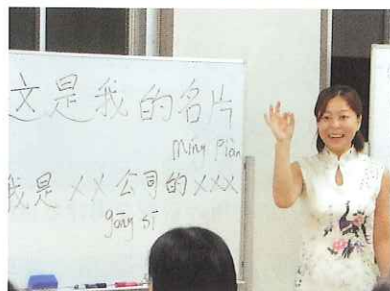 这是我的名片
míng piàn
我是××公司的×××
gōng sī